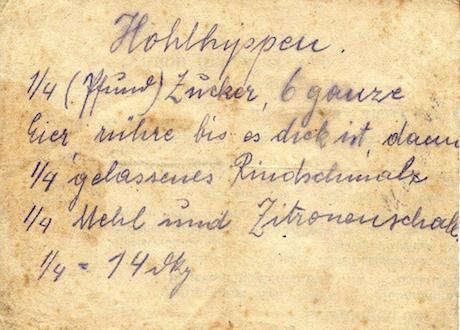 Hohlhippen.
1/4 (Pfund) Zucker, 6 ganze
Eier, rühre bis es dick ist, dann
1/4 gelassenes Rindschmalz
1/4 Mehl und Zitronenschale
1/4 = 14 dkg